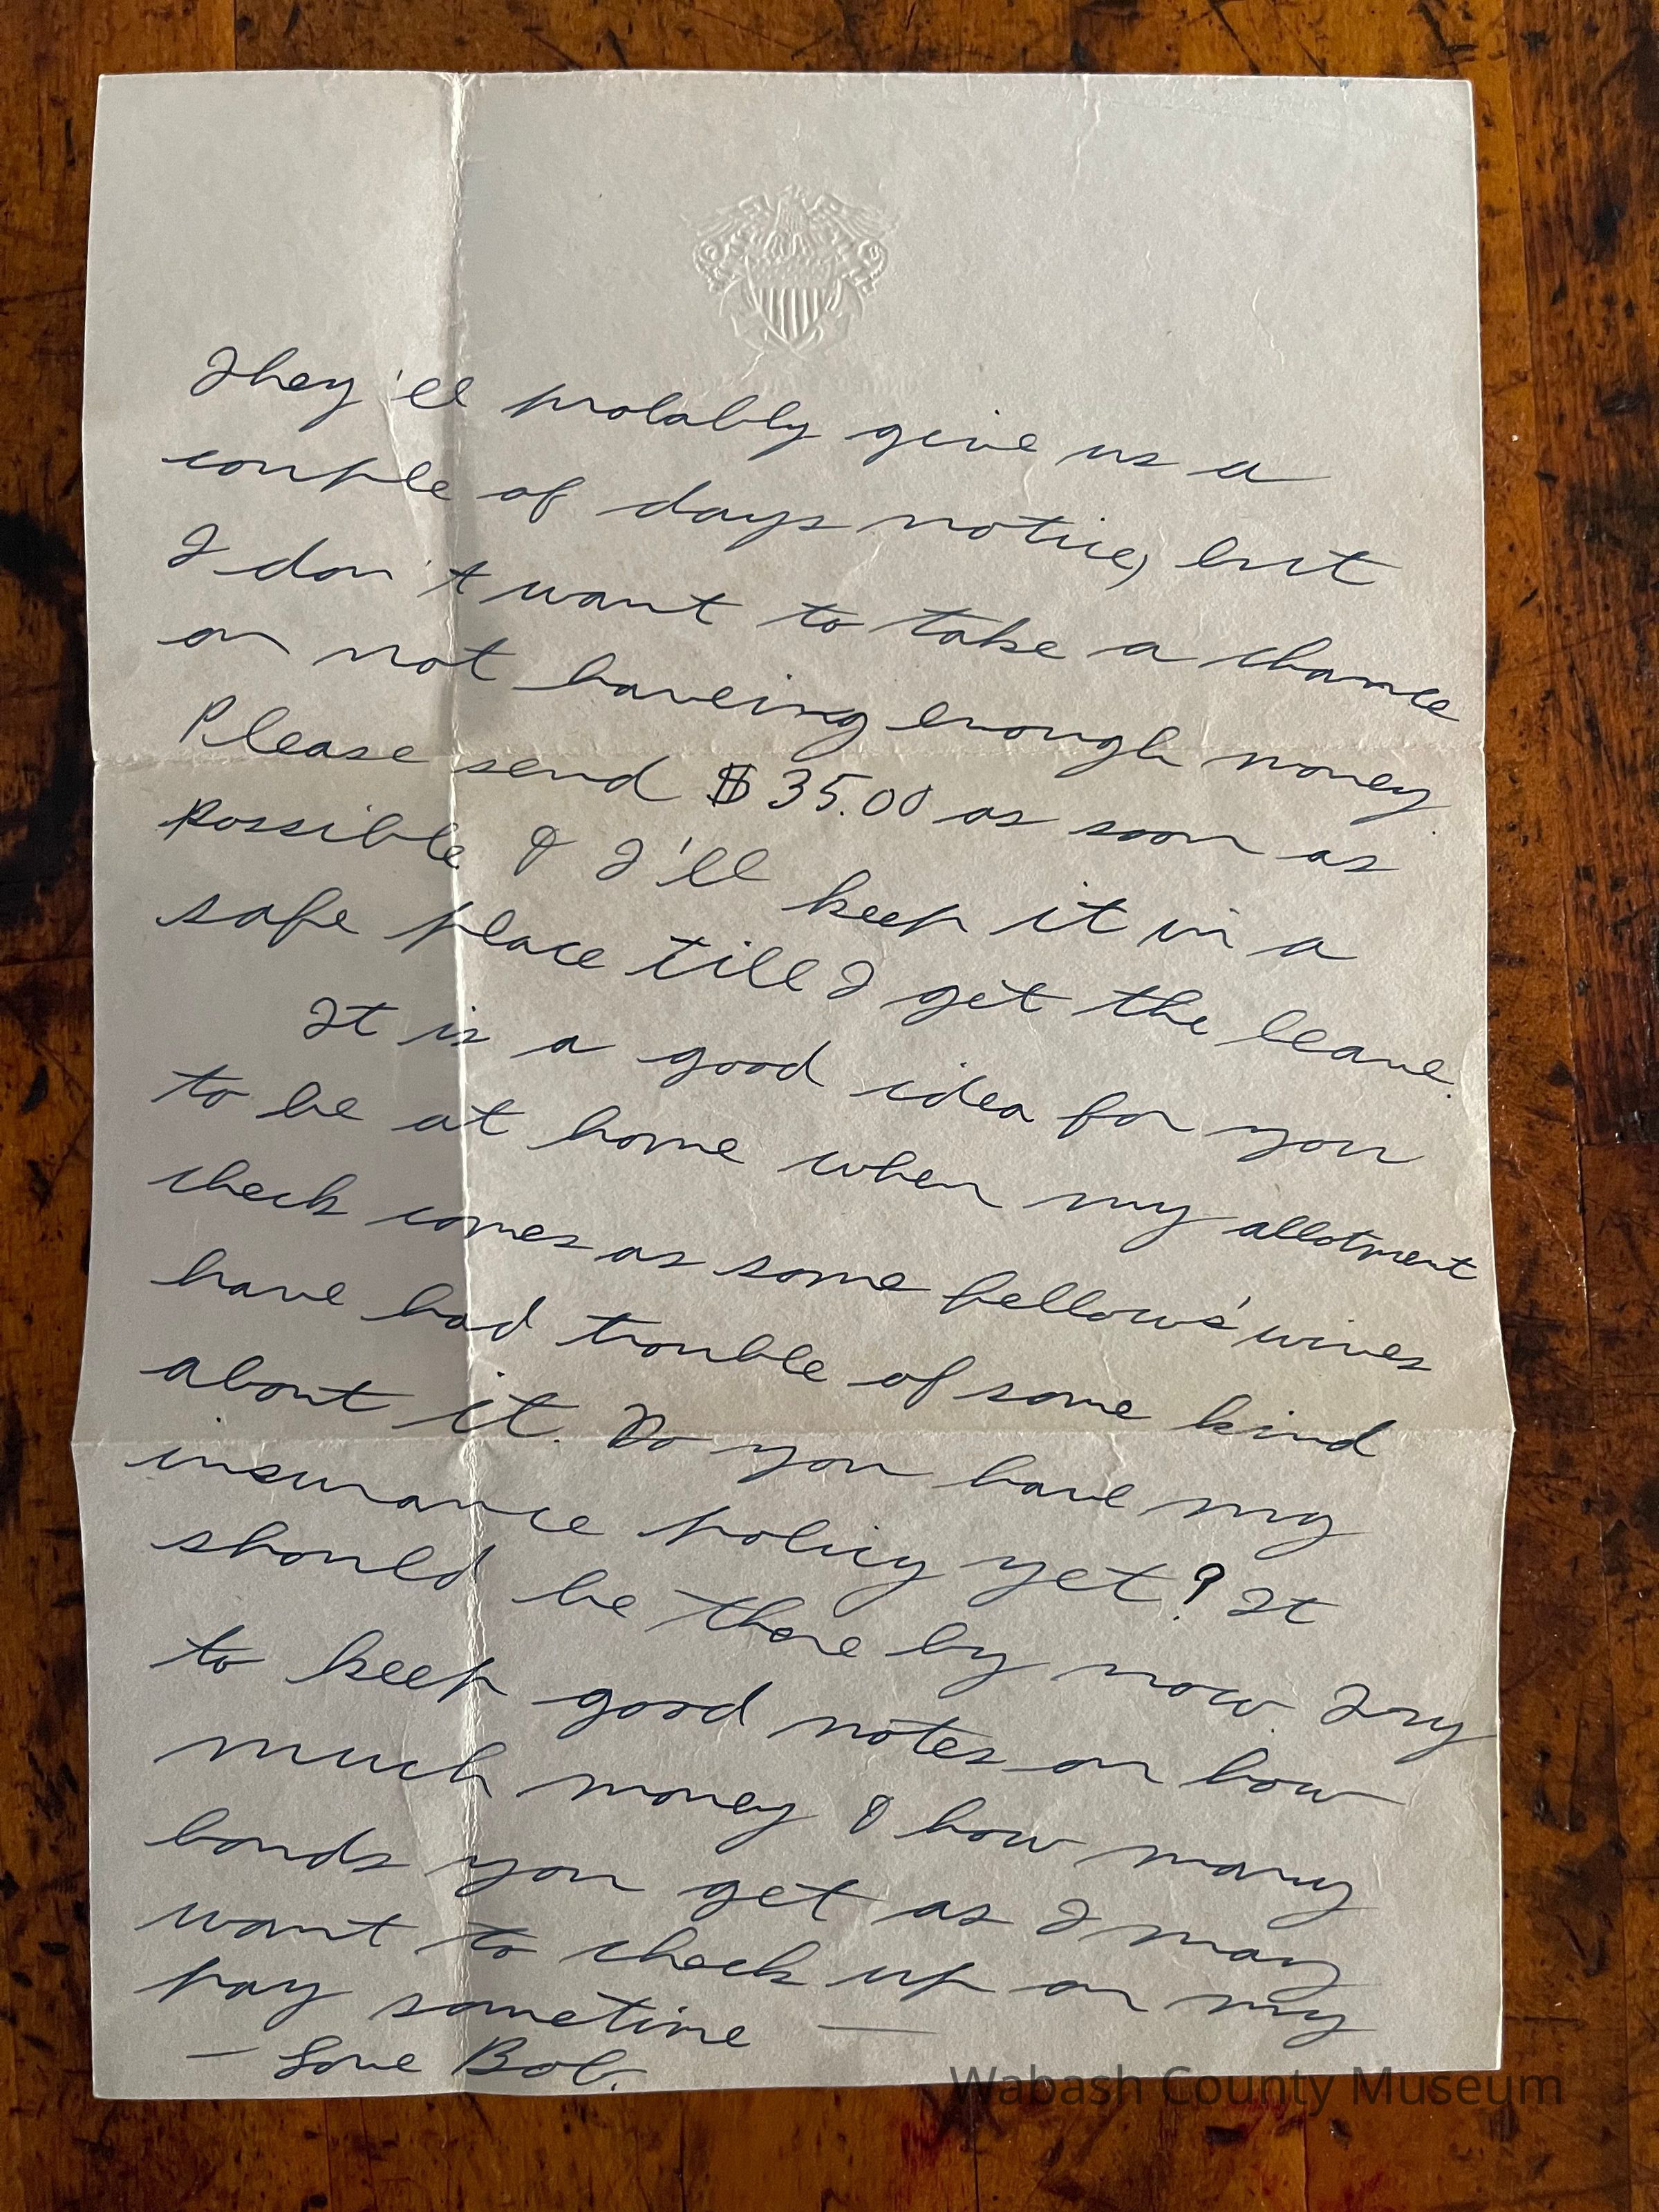 They'll probably give us a
couple of days notice, but
I don't want to take a chance
on not haveing enough money.
Please send $35.00 as soon as
possible & I'll keep it in a
safe place till I get the leave.
It is a good idea for you
to be at home when my allotment
check comes as some fellows' wives
have had trouble of some kind
about it. Do you have my
insurance policy yet? It
should be there by now. Try
to keep good notes on how
much money & how many
bonds you get as I may
want to check up on my
pay sometime —
— Love Bob.
Wabash County Museum